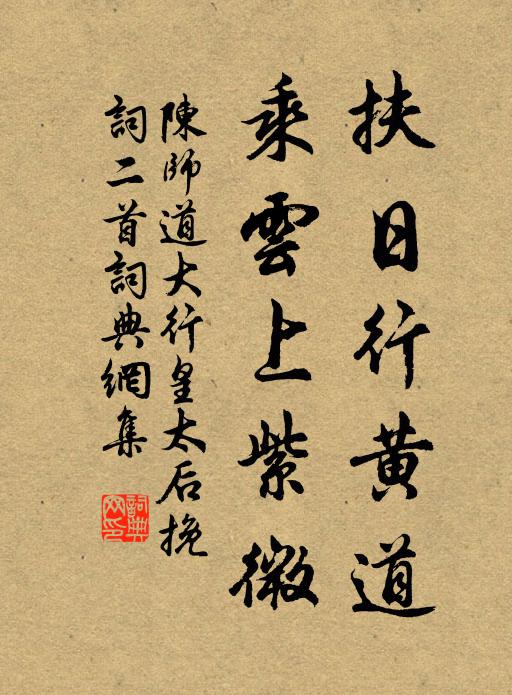 扶日行黄道
乘雲上紫微
陳師道大行皇太后挽
詞二首詞典網集
詞典
网印